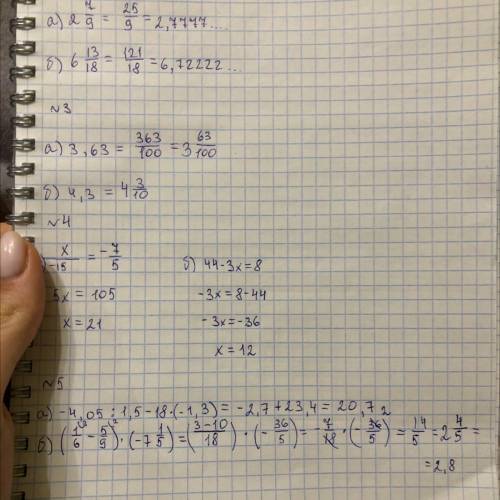 а) 2 7/9 = 25/9 = 2,7777...
б) 6 13/18 = 121/18 = 6,72222...
№3
а) 3,63 = 363/100 = 3 63/100
б) 4,3 = 4 3/10
№4
) x/-15 = -7/5 б) 44-3x=8
5x = 105 -3x=8-44
x = 21 -3x=-36
x = 12
№5
а) -4,05 : 1,5 - 18·(-1,3) = -2,7 + 23,4 = 20,7
б) (1/6 - 5/9)·(-7 1/5) = (3-10/18)·(-36/5) = -7/18·(-36/5) = 14/5 = 2 4/5 =
= 2,8